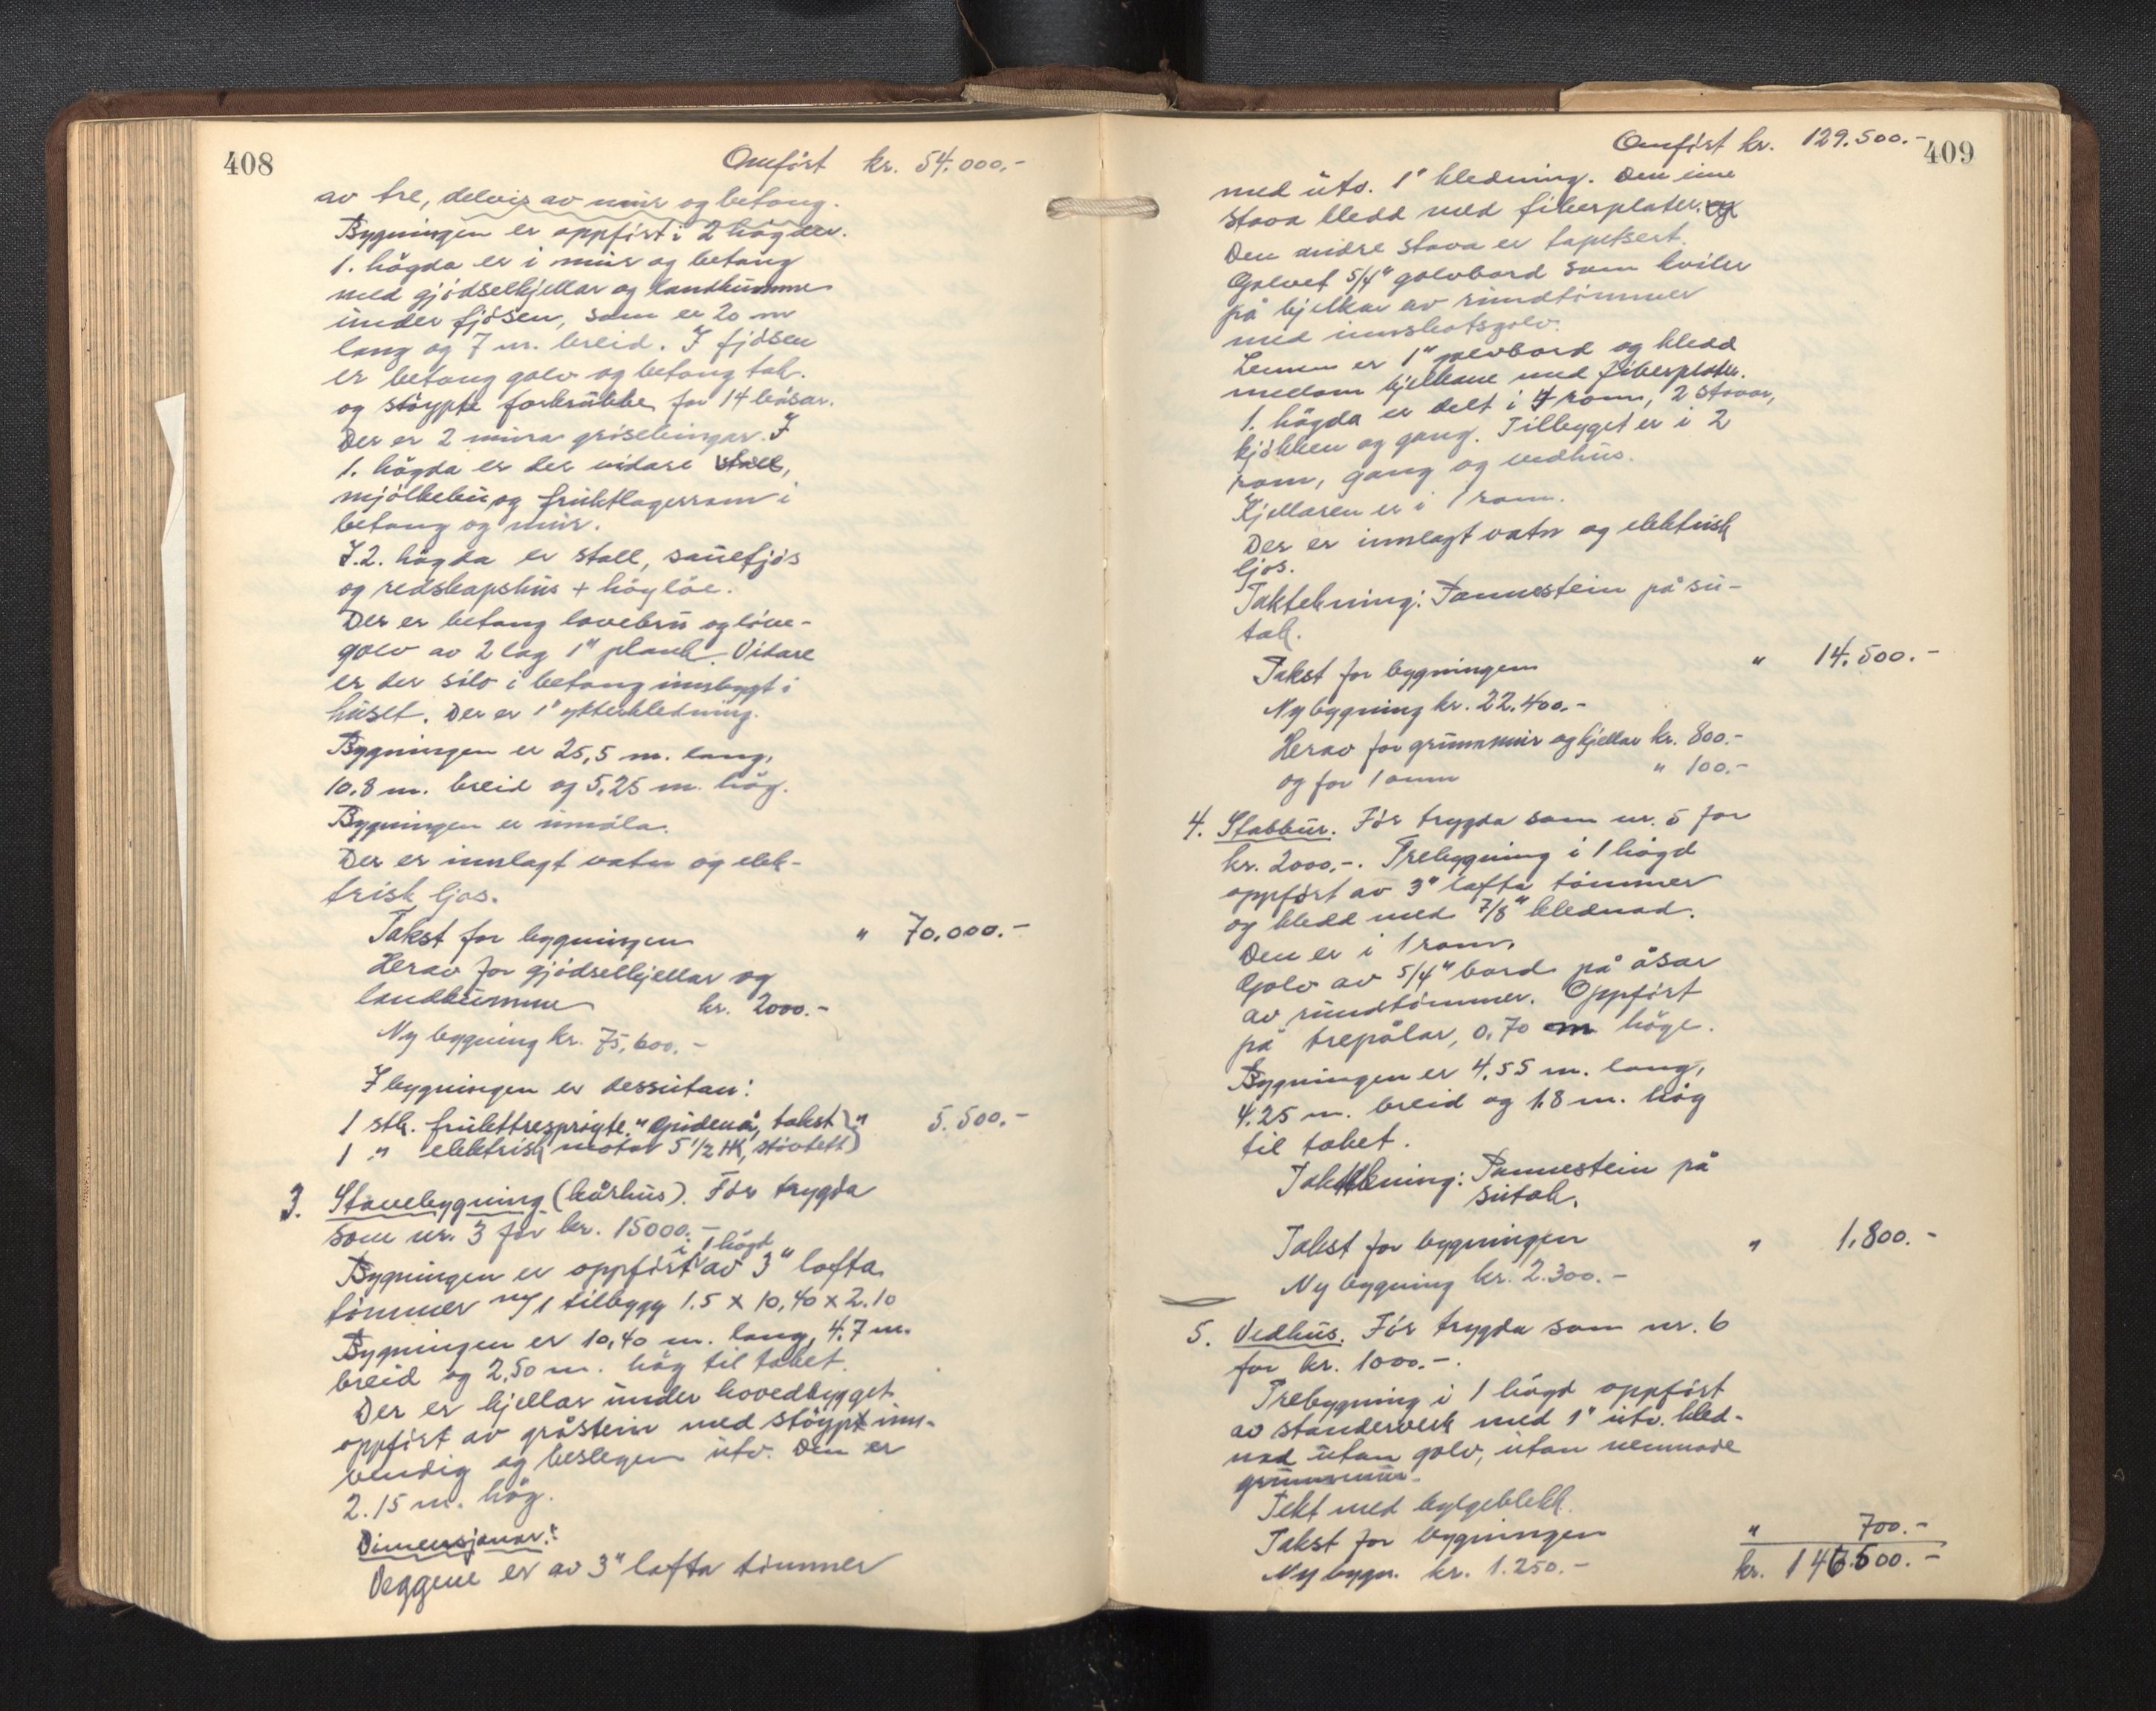 408
Omført kr. 54.000.-
av tre, delvis av mur og betong.
Bygningen er oppført i 2 högder.
1. högda er i mur og betong
med gjödselkjellar og landkumme
under fjösen, som er 20 m
lang og 7 m. breid. I fjösen
er betong golv og betong tak.
og stöypte forkrubbe for 14 båsar.
Der er 2 mura grisebingar. I
1. högda er der vidare stall,
mjölkebu og fruktlagerrom i
betong og mur.
I. 2. högda er stall, sauefjös
og redskapshus + höylöe.
Der er betong lovebru og löve-
golv av 2 lag 1" plank. Vidare
er der silo i betong innbygt i
huset. Der er 1" ytterkledning.
Bygningen er 25,5 m. lang,
10.8 m. breid og 5,25 m. hög.
Bygningen er umåla.
Der er innlagt vatn og elek-
trisk ljos.
Takst for bygningen " 70.000.-
Herav for gjödselkjellar og
landkumme kr. 2000.-
Ny bygning kr. 75.600.-
I bygningen er dessutan:
1 stk. frukttresprøyte, takst " 5.500.-
1 " elektrisk motor 5 1/2 HK, støvtett
3. Stovebygning (kårhus). Før trygda
som nr. 3 for kr. 15000.-
i 1 högd
Bygningen er oppført av 3" lafta
tömmer m/1 tilbygg 1.5 x 10,40 x 2.10
Bygningen er 10,40 m. lang, 4.7 m.
breid og 2,50 m. hög til taket.
Der er kjellar under hovedbygget
oppført av gråstein med stöypt inn-
vendig og beslegen utv. Den er
2.15 m. hög.
Dimensjonar:
Veggene er av 3" lafta tömmer
409
Omført kr. 129.500.-
med utv. 1" kledning. Den eine
stova kledd med fiberplater. og
Den andre stova er tapetsert.
Golvet 5/4" golvbord som kviler
på bjelkar av rundtömmer
med innskotsgolv.
Lemen er 1" golvbord og kledd
mellom bjelkane med fiberplater.
1. högda er delt i 4 rom, 2 stover,
kjökken og gang. Tilbygget er i 2
rom, gang og vedhus.
Kjellaren er i 1 rom.
Der er innlagt vatn og elektrisk
ljos.
Taktekning: Pannestein på su-
tak.
Takst for bygningen " 14.500.-
Ny bygning kr. 22.400.-
Herav for grunnmur og kjellar kr. 800.-
og for 1 omn " 100.-
4. Stabbur. Før trygda som nr. 5 for
kr. 2000.-. Trebygning i 1 högd
oppført av 3" lafta tömmer
og kledd med 7/8" klednad.
Den er i 1 rom.
Golv av 5/4" bord på åsar
av rundtömmer. Oppført
på trepålar, 0.70 m höge.
Bygningen er 4.55 m. lang,
4.25 m. breid og 1.8 m. hög
til taket.
Taktekning: Pannestein på
sutak.
Takst for bygningen " 1.800.-
Ny bygning kr. 2.300.-
5. Vedhus. Før trygda som nr. 6
for kr. 1000.-.
Trebygning i 1 högd oppført
av standerverk med 1" utv. kled-
nad utan golv, utan nemnade
grunnmur.
Tekt med bylgeblekk.
Takst for bygningen " 700.-
Ny bygn. kr. 1.250.- kr. 146.500.-